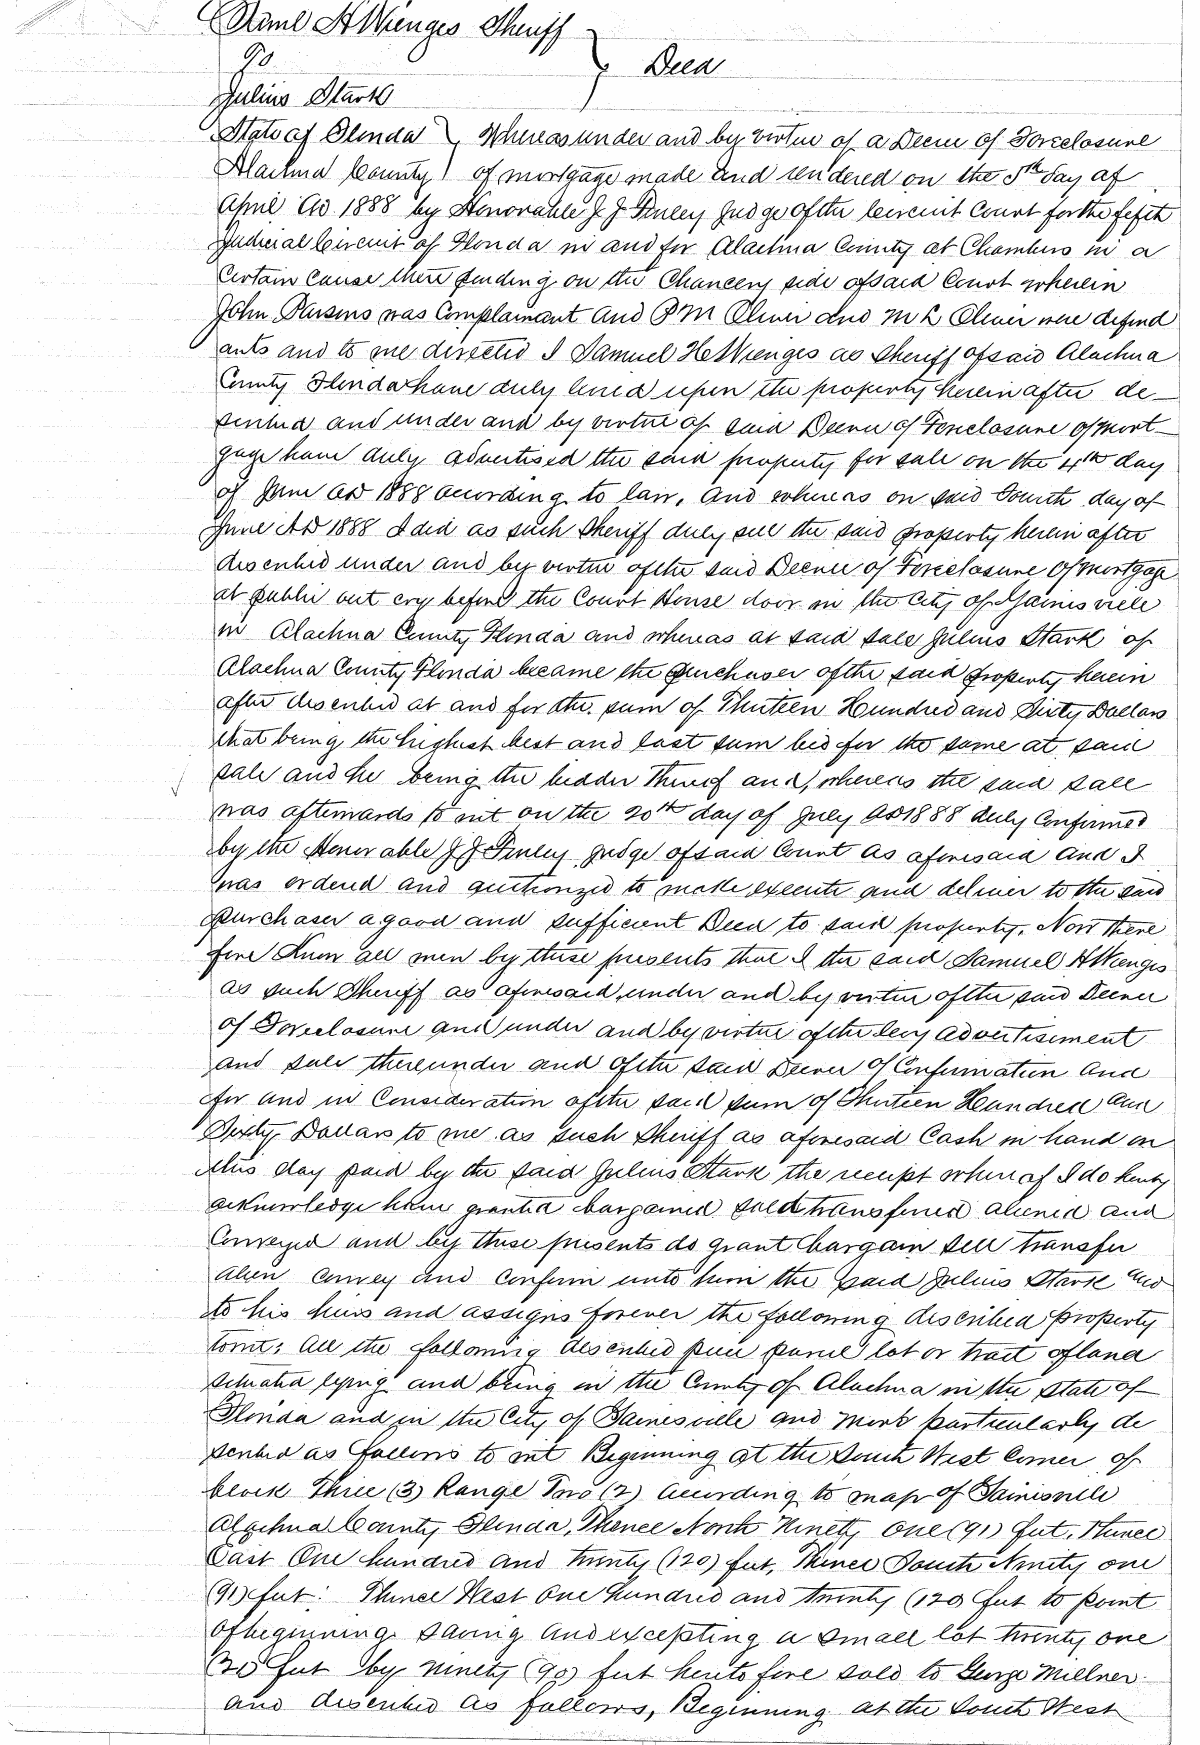 Saml H Wienges Sheriff
To } Deed
Julius Stark
State of Florida } Whereas under and by virtue of a Decree of Foreclosure
Alachua County } of mortgage made and rendered on the 5th day of
April AD 1888 by Honorable J J Finley Judge of the Circuit Court for the fifth
Judicial Circuit of Florida in and for Alachua County at Chambers in a
Certain cause there pending on the Chancery side of said Court wherein
John Parsons was Complainant and P M Oliver and M L Oliver were defend
ants and to me directed I Samuel H Wienges as Sheriff of said Alachua
County Florida have duly levied upon the property herein after de-
scribed and under and by virtue of said Decree of Foreclosure of Mort-
gage have duly advertised the said property for sale on the 4th day
of June AD 1888 according to law, and whereas on said Fourth day of
June AD 1888 I did as such Sheriff duly sell the said property herein after
described under and by virtue of the said Decree of Foreclosure of Mortgage
at public out cry before the Court House door in the City of Gainesville
in Alachua County Florida and whereas at said sale Julius Stark of
Alachua County Florida became the purchaser of the said property herein
after described at and for the sum of Thirteen Hundred and Sixty Dollars
that being the highest best and last sum bid for the same at said
sale and he being the bidder thereof and, whereas the said sale
was afterwards to wit on the 20th day of July AD 1888 duly Confirmed
by the Honorable J J Finley Judge of said Court as aforesaid and I
was ordered and authorized to make execute and deliver to the said
purchaser a good and sufficient Deed to said property. Now there
fore Know all men by these presents that I the said Samuel H Wienges
as such Sheriff as aforesaid under and by virtue of the said Decree
of Foreclosure and under and by virtue of the levy advertisement
and sale thereunder and of the said Decree of Confirmation and
for and in Consideration of the said sum of Thirteen Hundred and
Sixty Dollars to me as such Sheriff as aforesaid Cash in hand on
this day paid by the said Julius Stark the receipt wherof I do hereby
acknowledge have granted bargained sold transferred aliened and
Conveyed and by these presents do grant bargain sell transfer
alien convey and confirm unto him the said Julius Stark and
to his heirs and assigns forever the following described property
towit: All the following described piece parcel lot or tract of land
situated lying and being in the County of Alachua in the State of
Florida and in the City of Gainesville and more particularly de
scribed as follows to wit Beginning at the South West Corner of
block Three (3) Range Two (2) According to map of Gainesville
Alachua County Florida, Thence North Ninety one (91) feet, Thence
East One hundred and twenty (120) feet, Thence South Ninety one
(91) feet: Thence West One hundred and twenty (120 feet to point
of beginning saving and excepting a small lot twenty one
(21) feet by ninety (90) feet heretofore sold to George Millner
and described as follows, Beginning at the South West